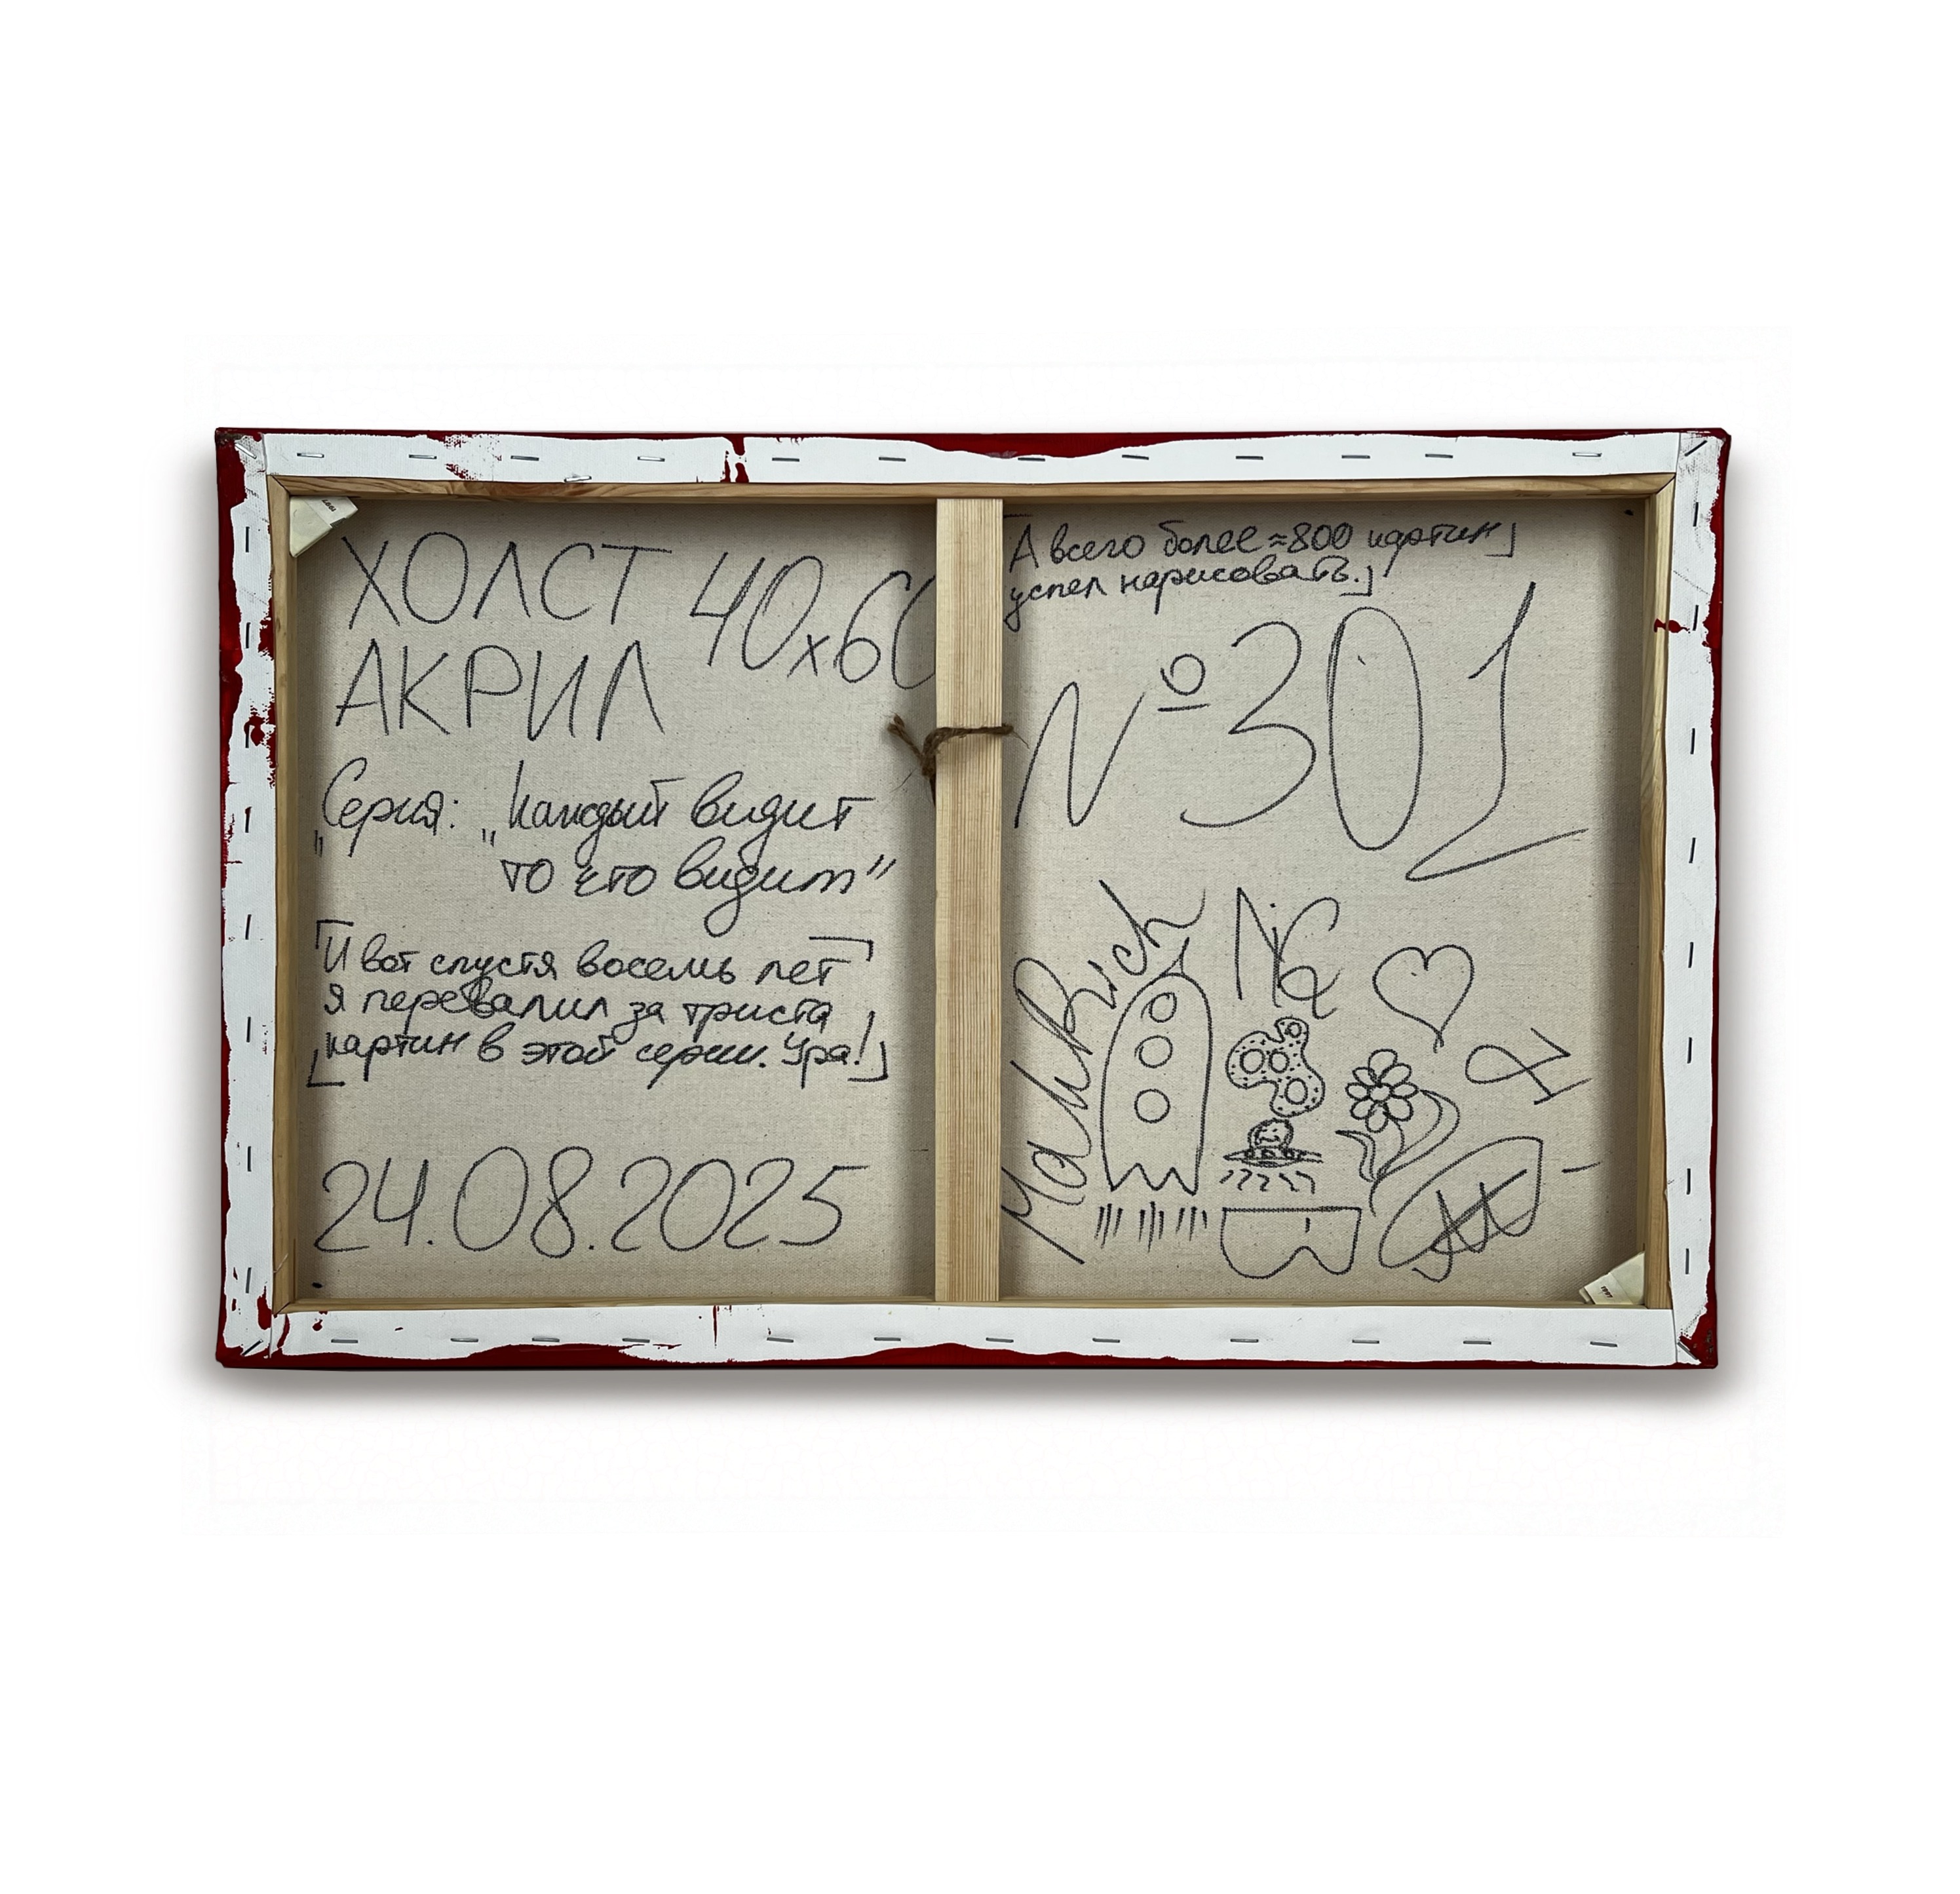 ХОЛСТ 40х60
АКРИЛ
Серия: „Каждый видит
то что видит”
И вот спустя восемь лет
я перевалил за триста
картин в этой серии. Ура!
24.08.2025
А всего более ≈800 картин
успел нарисовать.
№301
MaukRich